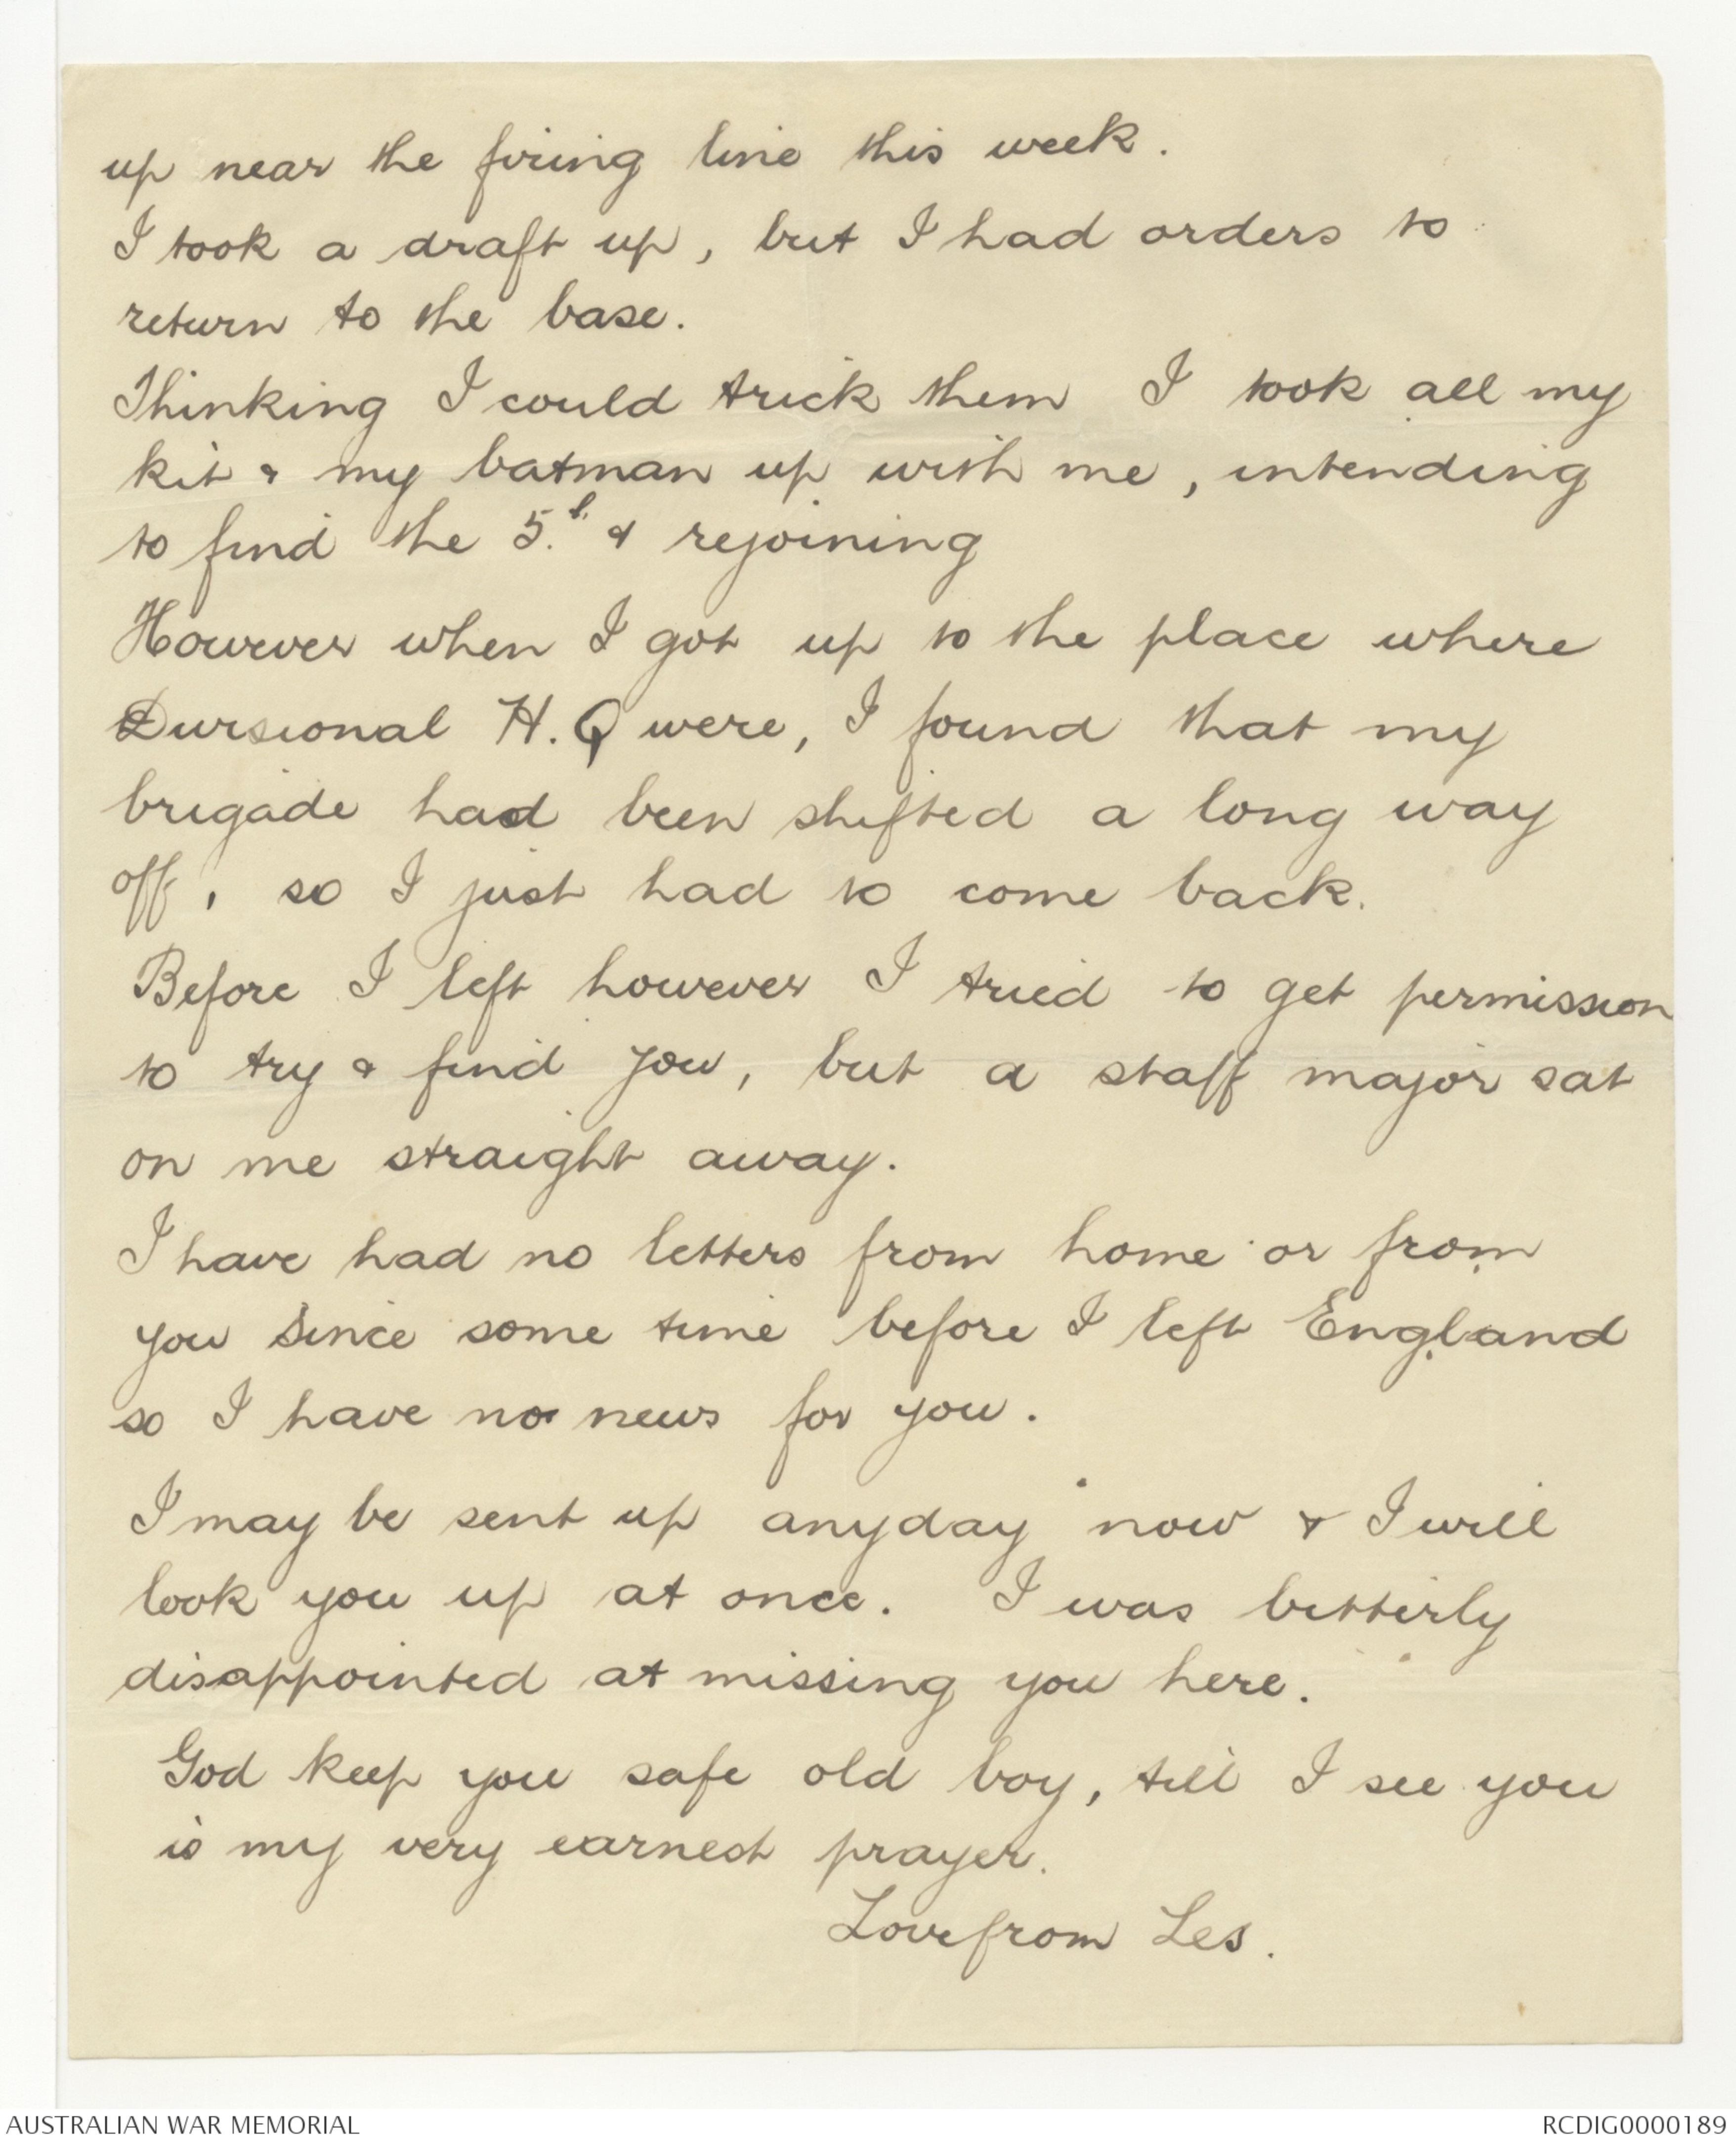 up near the firing line this week.
I took a draft up, but I had orders to
return to the base.
Thinking I could trick them I took all my
kit & my batman up with me, intending
to find the 5th & rejoining
However when I got up to the place where
Divisional H.Q were, I found that my
brigade had been shifted a long way
off, so I just had to come back.
Before I left however I tried to get permission
to try & find you, but a staff major sat
on me straight away.
I have had no letters from home or from
you since some time before I left England
so I have no news for you.
I may be sent up anyday now & I will
look you up at once. I was bitterly
disappointed at missing you here.
God keep you safe old boy, till I see you
is my very earnest prayer.
Love from Les.
AUSTRALIAN WAR MEMORIAL
RCDIG0000189